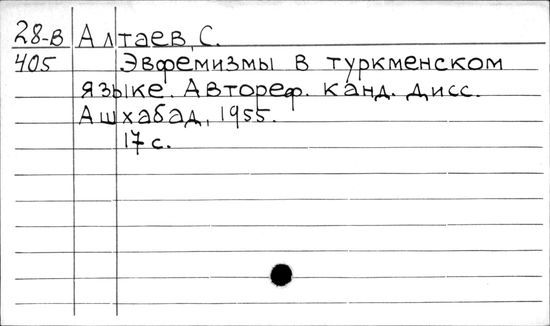 28-в Алтаев, С.
405 Эвфемизмы в туркменском
языке. Автореф. канд. дисс.
Ашхабад, 1955.
17 с.